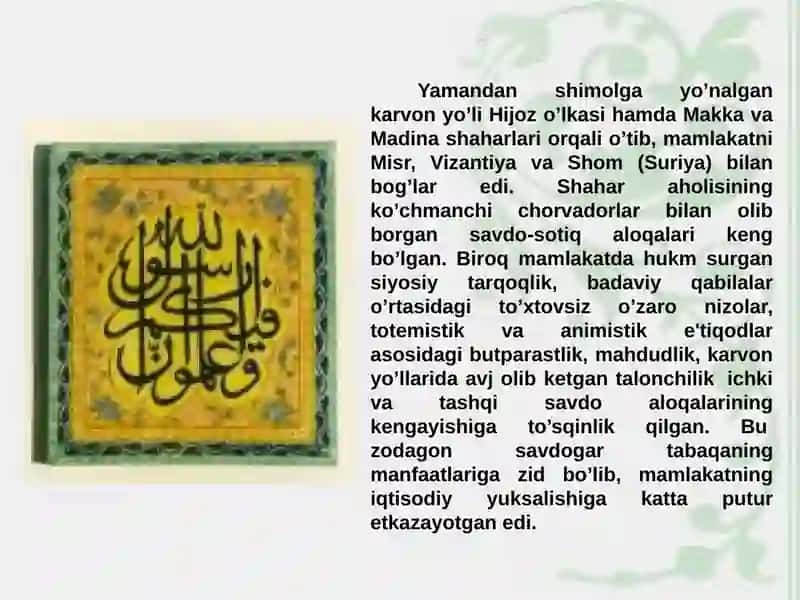 واعلموا أن
فيكم
رسول
الله
Yamandan shimolga yo’nalgan
karvon yo’li Hijoz o’lkasi hamda Makka va
Madina shaharlari orqali o’tib, mamlakatni
Misr, Vizantiya va Shom (Suriya) bilan
bog’lar edi. Shahar aholisining
ko’chmanchi chorvadorlar bilan olib
borgan savdo-sotiq aloqalari keng
bo’lgan. Biroq mamlakatda hukm surgan
siyosiy tarqoqlik, badaviy qabilalar
o’rtasidagi to’xtovsiz o’zaro nizolar,
totemistik va animistik e'tiqodlar
asosidagi butparastlik, mahdudlik, karvon
yo’llarida avj olib ketgan talonchilik ichki
va tashqi savdo aloqalarining
kengayishiga to’sqinlik qilgan. Bu
zodagon savdogar tabaqaning
manfaatlariga zid bo’lib, mamlakatning
iqtisodiy yuksalishiga katta putur
etkazayotgan edi.